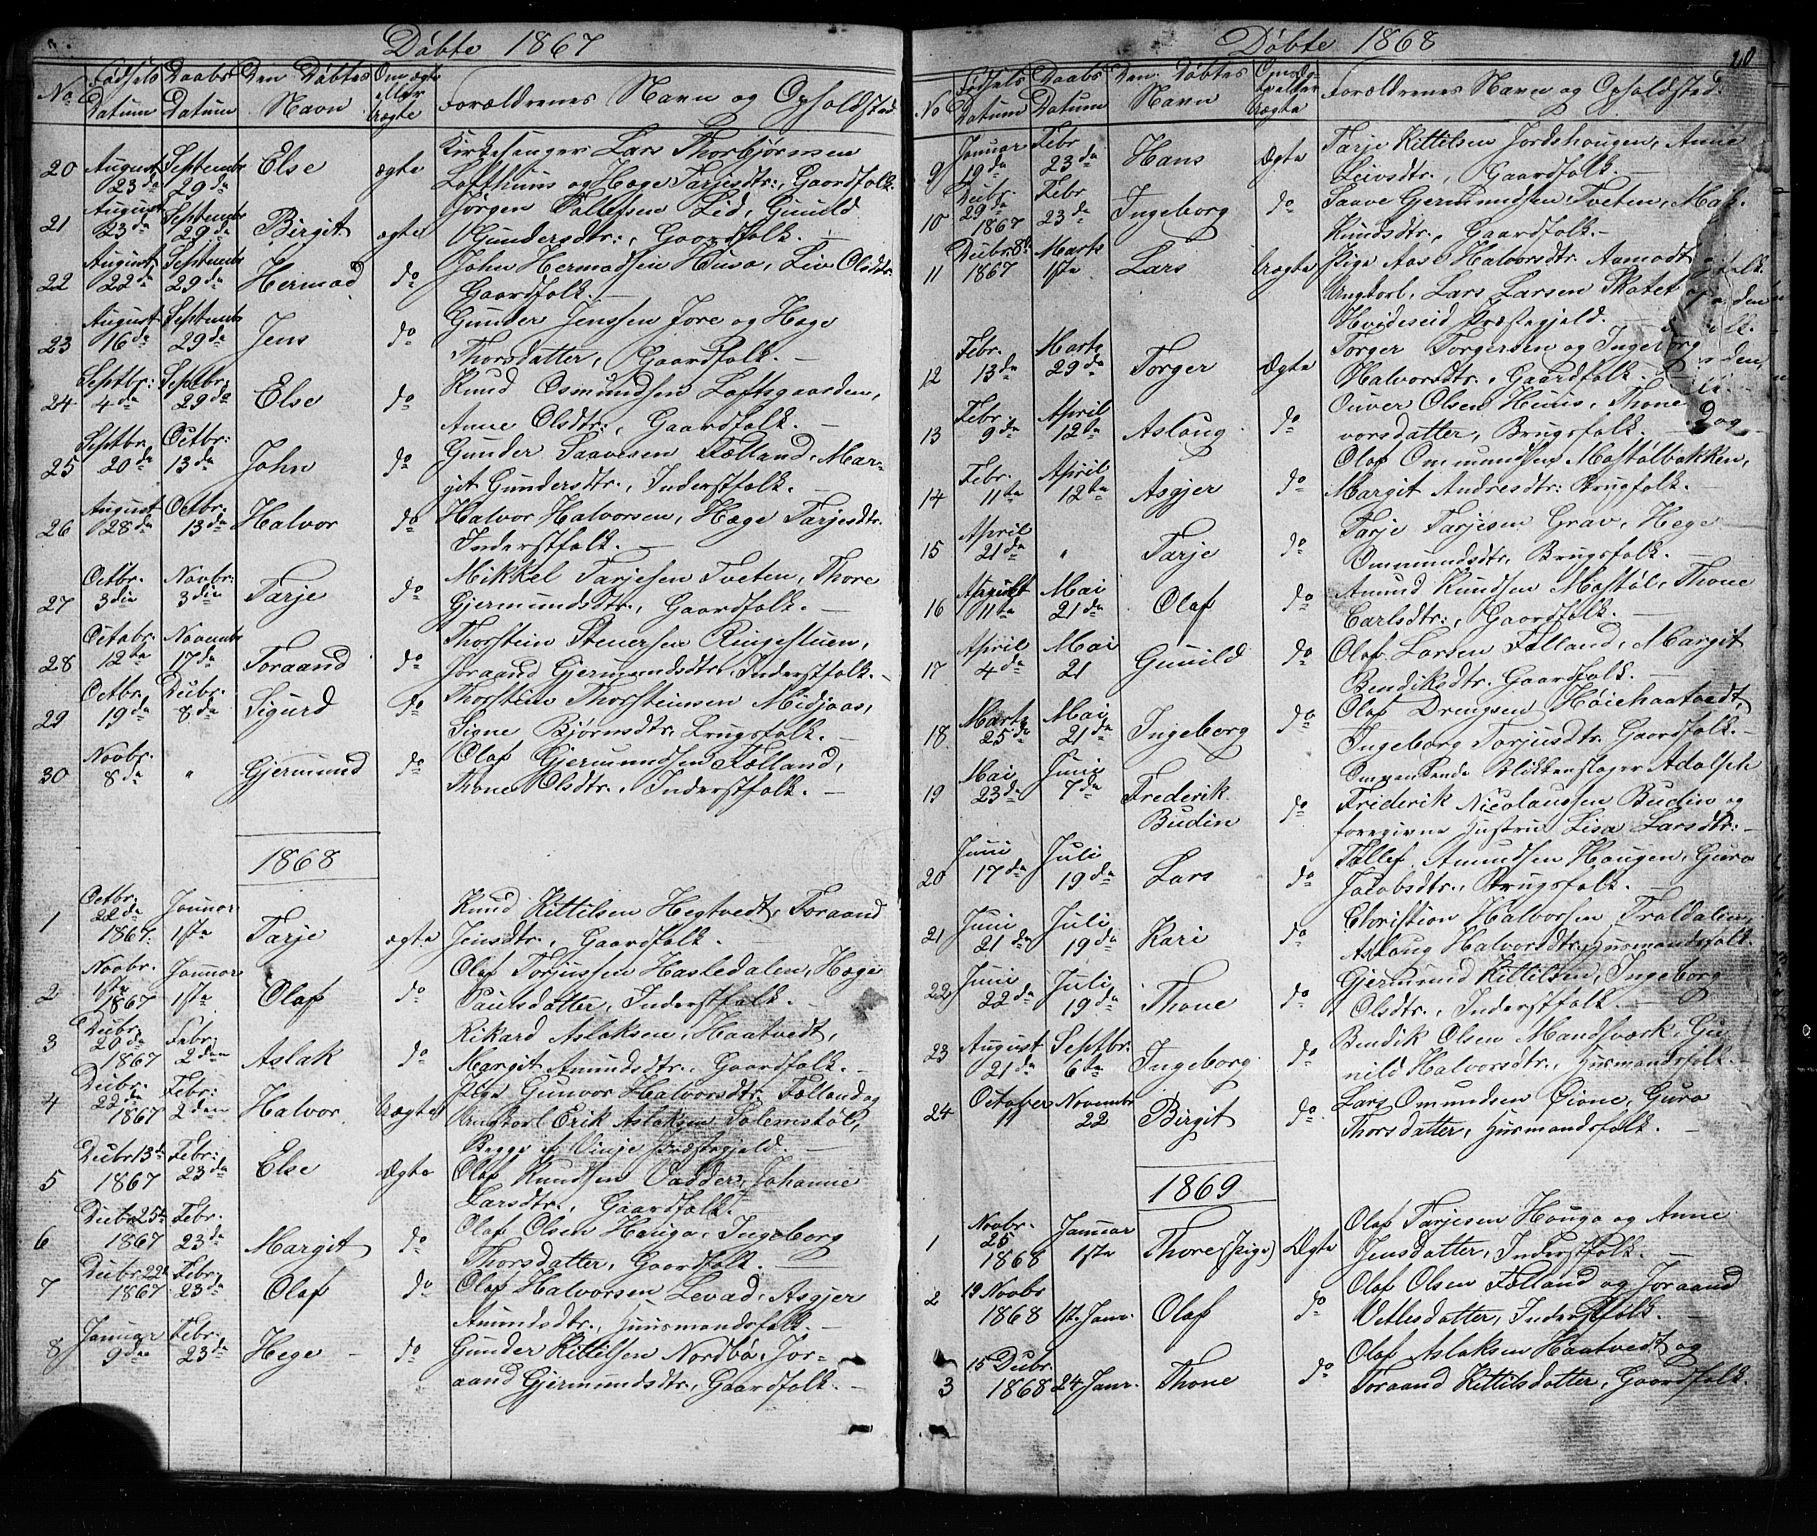 Döbte 1867
No
Födsels Datum
Daabs Datum
Den Döbtes Navn
Om ægte eller uægte
Forældrenes Navn og Opholdssted
20 August 23da Septembr 29da Else ægte Kirkesanger Lars Thorbjørnsen
Lofthuus og Hæge Tarjesdtr:, Gaardfolk
21 August 23da Septembr 29da Birgit ægte Jörgen Lid, Gunild
Gundersdtr:, Gaardfolk.—
22 August 22da Septembr 29da Hermod do John Hermodsen Huso, Liv Olsdtr:
Gaardfolk.—
23 August 16da Septembr 29da Jens do Gunder Jenssen Jore og Hæge
Thorsdatter, Gaardfolk.—
24 Septbr: 4da Sepbr. 29da Else do Knud Osmundsen Loftsgaarden,
Anne Olsdtr:, Gaardfolk.—
25 Septbr. 20da Octbr: 13da John do Gunder Saavesen Fælland, Mar-
git Gundersdtr:, Inderstfolk.—
26 August 28da Octbr. 13da Halvor do Halvor Halvorsen, Hæge Tarjesdtr:
Inderstfolk.—
27 Octbr. 3die Novbr: 3die Tarje do Mikkel Tarjesen Tveten, Thore
Gjermundsdtr:, Gaardfolk.—
28 Octobr. 12te Novembr 17da Toraand do Thorstein Stenersen Ringestuen,
Joraand Gjermundsdtr:, Inderstfolk.—
29 Octbr. 19da Decbr. 8da Sigurd do Thorstein Thorsteinsen Midjaas,
Signe Björnsdtr: Brugsfolk.—
30 Novbr. 8da " Gjermund do Olaf Gjermundsen Fælland,
Thone Olsdtr:, Inderstfolk.—
1868
1 Octbr. 22da 1867. Januar 1ste Tarje ægte Knud Kittilsen Hegtvedt, Toraand
Jensdtr:, Gaardfolk.—
2 Novbr. 1ste 1867 Januar 1ste Olaf do Olaf Torjussen Hasledalen, Hæge
Paulsdatter, Inderstfolk.—
3 Decbr. 20da 1867 Febr. 2den Aslak do Rikard Aslaksen Haatvedt,
Margit Amundsdtr:, Gaardfolk.—
4 Decbr. 22da 1867 Febr: 2den Halvor Uægte Pige Gunvor Halvorsdtr: Fælland og
Ungkarl Erik Aslaksen Solemstöl,
Begge af Vinje Præstegjeld.—
5 Decbr 13da 1867 Febr: 23da Else Ægte Olaf Knudsen Vadder, Johanne
Larsdtr:, Gaardfolk.
6 Decbr 25te 1867 Febr. 23da Margit do Olaf Olsen Hauga, Ingeborg
Thorsdatter, Gaardfolk.—
7 Decbr 22de 1867 Febr. 23da Olaf do Olaf Halvorsen Levad, Asgjer
Amundsdtr:, Huusmandsfolk.—
8 Januar 9da Febr. 23da Hege do Gunder Kittilsen Nordbö, Jor-
aand Gjermundsdtr:, Gaardfolk.—
Döbte 1868
20
No
Födsels Datum
Daabs Datum
Den Döbtes Navn
Forældrenes Navn og Opholdssted.
9 Januar 19da Febr 23da Hans Ægte Tarje Kittilsen Jordshaugen, Anne
Leivsdtr:, Gaardfolk.—
10 Decbr. 29da 1867 Febr 23da Ingeborg do Saave Gjermundsen Tveten,
Knudsdtr:, Gaardfolk.—
11 Decbr: 8da 1867 Marts 1ste Lars Uægte Pige Aas Halvorsdtr: Aamodt
Ungkarl, Lars Larsen
Hvideseid Præstegjeld.—
12 Febr. 13da Marts 29da Torger Ægte Torger Torgersen og Ingeborg
Halvorsdtr:, Gaardfolk.—
13 Febr. 9da April 12te Aslaug do Ouver Olsen Huus, Thone
vorsdatter, Brugsfolk.—
14 Febr. 11te April 12te Asgjer do Olaf Ommundsen Mostölbakken,
Margit Andresdtr: Brugfolk.—
15 April 21da " Tarje do Tarje Tarjesen Grav, Hege
Ommundsdtr:, Brugsfolk.—
16 11te Mai 21da Olaf do Amund Knudsen Mostöl, Thone
Carlsdtr:, Gaardfolk.—
17 April 4da Mai 21 Gunild do Olaf Larsen Fælland, Margit
Bendiksdtr: Gaardfolk.—
18 Marts 25da Mai 21da Ingeborg do Olaf Drengsen Höiehaatvedt,
Ingeborg Torjusdtr: Gaardfolk.—
19 Mai 23da Juni 7da Frederik Budin do Omgaaende Blikkenslager Adolph
Friderik Nicolaussen Budin og
foregivne Hustru Lisa Larsdtr:—
20 Juni 17da Juli 19da Lars do Tallef Amundsen Haugen, Guro
Jacobsdtr:, Brugsfolk.—
21 Juni 21da Juli 19da Kari do Christian Halvorsen Traldalen,
Aslaug Halvorsdtr: Husmandsfolk.
22 Juni 22da Juli 19da Thone do Gjermund Kittilsen, Ingeborg
Olsdtr:, Inderstfolk.—
23 August 21da Septbr. 6te Ingeborg do Bendik Olsen Mandfværk, Gu-
nild Halvorsdtr:, Husmandsfolk.—
24 October 11 Novembr 22 Birgit do Lars Omundsen Öione, Guro
Thorsdatter, Husmandsfolk.—
1869
1 Novbr. 25 1868 Januar 1ste Thore (Pige) Ægte Olaf Tarjesen Hauga og Anne
Jensdatter, Inderstfolk.—
2 19 Novbr 1868 17. Janr. Olaf do Olaf Olsen Fælland og Joraand
Vetlesdatter, Inderstfolk.—
3 15 Decbr. 1868 24 Janr. Thone do Olaf Aslaksen Haatvedt og
Toraand Kittilsdatter, Gaardfolk.